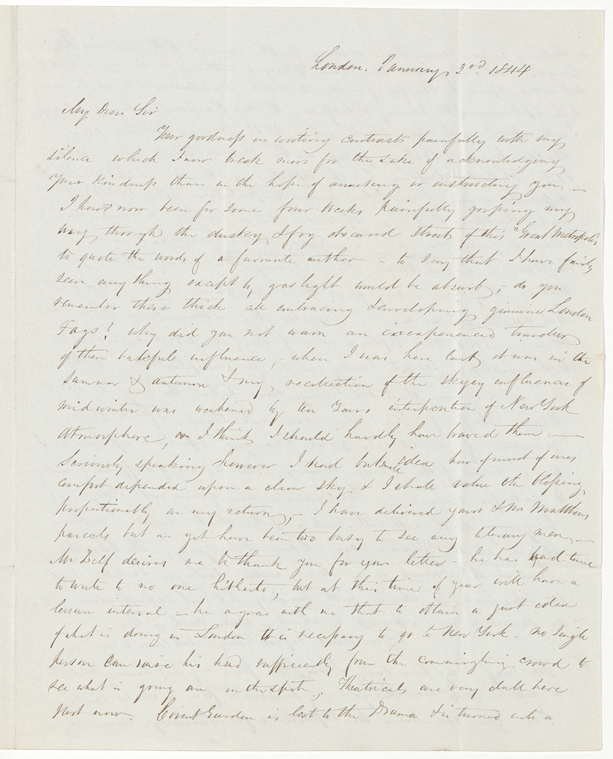 London. January 3rd 1844
My Dear Sir
Your goodness in writing contrasts painfully with my
silence which I now break more for the sake of acknowledging
your kindness than in the hope of amusing or instructing you —
I have now been for some four weeks painfully groping my
way through the dusky & fog obscured streets of this "Great Metropolis"
to quote the words of a favourite author – to say that I have fairly
seen any thing except by gas light would be absurd, do you
remember those thick all embracing enveloping genuine London
Fogs! why did you not warn an inexperienced traveller
of their baleful influence, when I was here last it was in the
summer & autumn & my recollection of the skyey influences of
midwinter was weakened by ten Years interposition of New York
atmosphere, or I think I should hardly have braved them —
Seriously speaking however I had but little idea how much of ones
comfort depended upon a clear sky & I shall value the blessing
proportionally on my return, – I have delivered yours & Mr Matthews
parcels but as yet have been two busy to see any literary men –
Mr Delf desires me to thank you for your letter he has had time
to write to no one hitherto, but at this time of year will have a
leisure interval – he agrees with me that to obtain a just idea
of what is doing in London it is necessary to go to New York. no single
person can raise his head sufficiently from the commingling crowd to
see what is going on in the state, Theatricals are very dull here
just now. Covent Garden is lost to the Drama & is turned into a